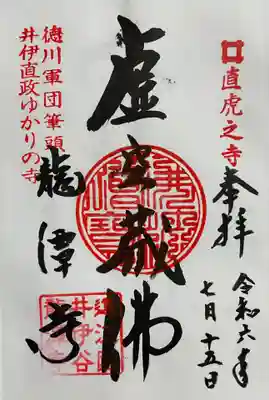 直虎之寺
奉拝
令和六年
七月十五日
虚空蔵佛
龍潭寺
徳川軍団筆頭
井伊直政ゆかりの寺
遠江國
井伊谷
龍潭寺